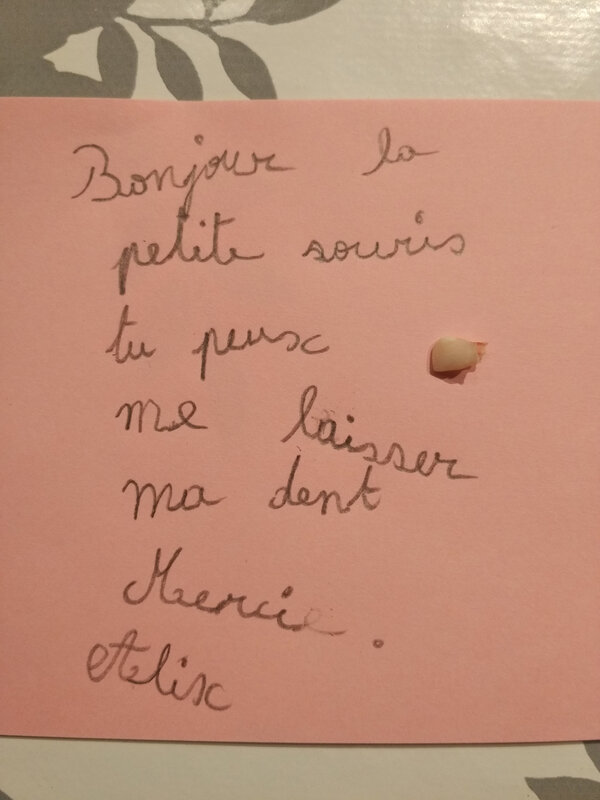 Bonjour la
petite souris
tu peux
me laisser
ma dent
Merci.
Alix